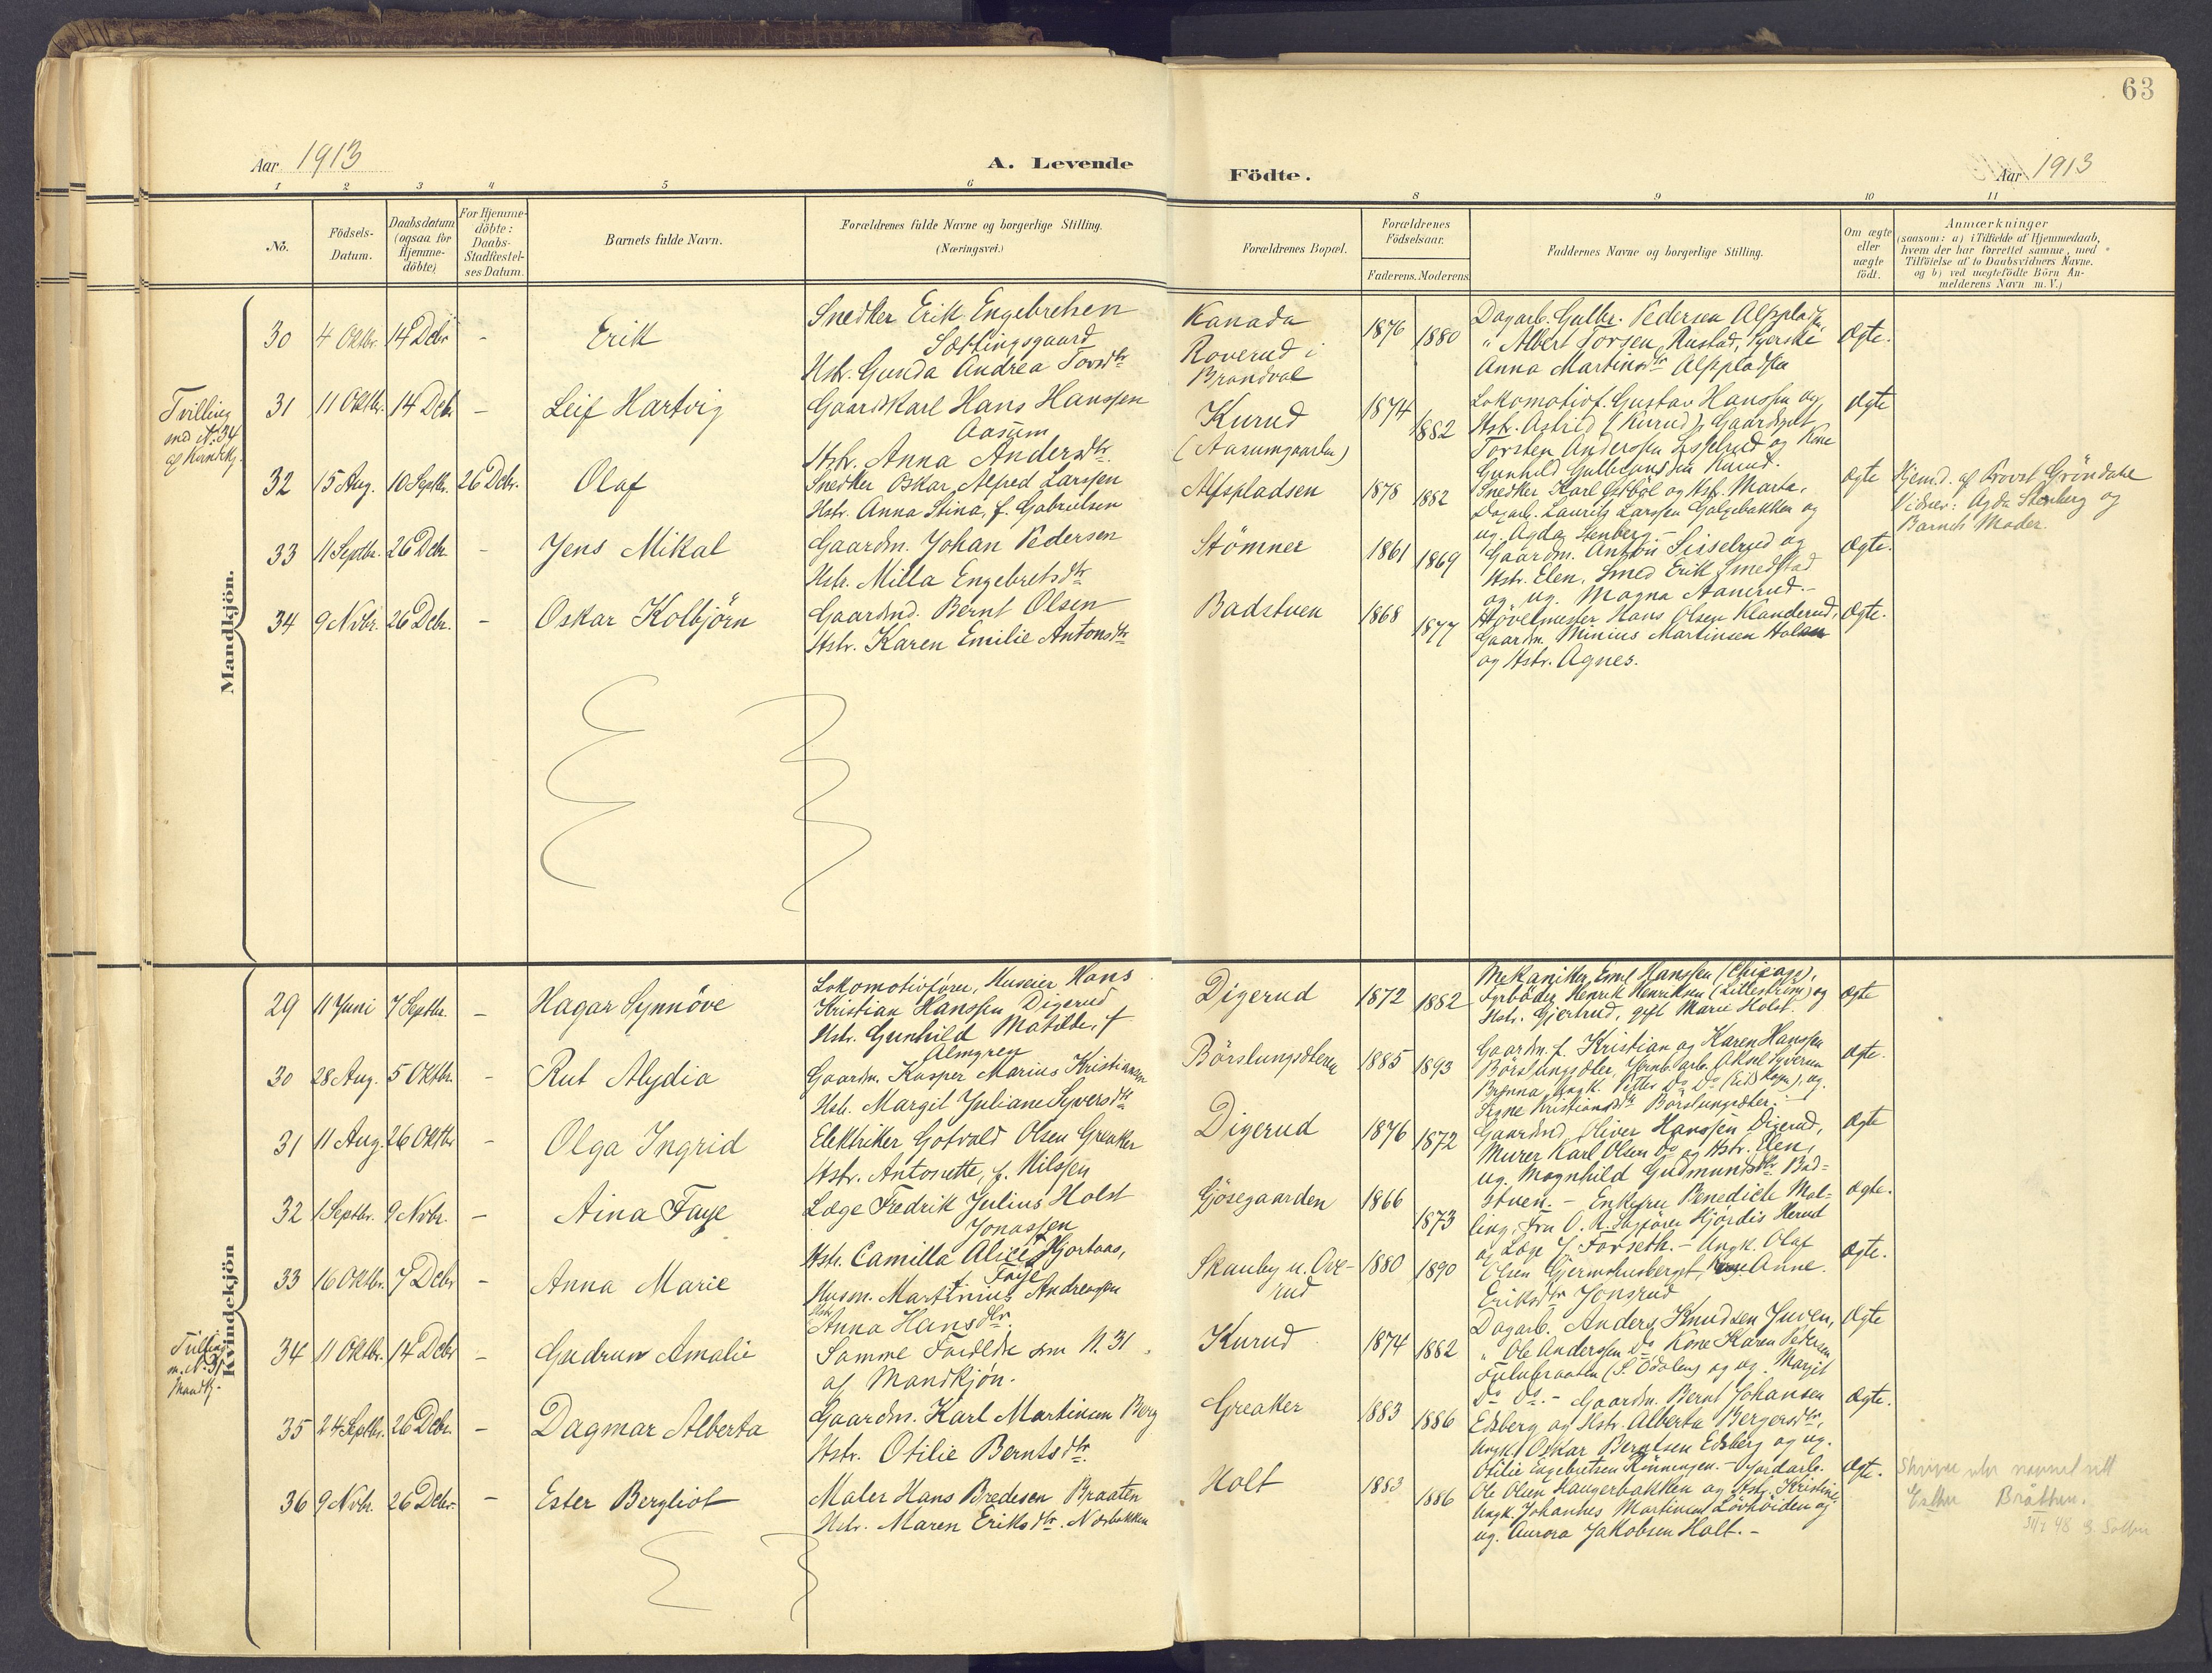 63
Aar 1913
A. Levende
Födte.
Aar 1913
1 2 3 4 5 6 8 9 10 11
No.
Födsels-
Datum.
Daabsdatum
(ogsaa for
Hjemme-
döbte)
For Hjemme-
döbte:
Daabs-
Stadfæstel-
ses Datum.
Barnets fulde Navn.
Forældrenes fulde Navne og borgerlige Stilling.
(Næringsvei.)
Forældrenes Bopæl.
Forældrenes
Födselsaar.
Faderens. Moderens.
Faddernes Navne og borgerlige Stilling.
Om ægte
eller
uægte
födt.
Anmærkninger
(saasom: a) i Tilfælde af Hjemmedaab,
hvem der har forrettet samme, med
Tilföielse af to Daabsvidners Navne.
og b) ved uægtefödte Börn An-
melderens Navn m. V.)
Mandkjön.
30 4 Oktbr. 14 Debr - Erik
Snedker Erik Engebretsen
Sætlingsgaard
Hstr. Gunda Andrea Torsdtr
Kanada
Roverud i
Brandval
1876 1880
Dagarb. Gulbr. Pedersen Alfspladsn
" Albert Torsen Rustad,
Anna Martinsdtr Alfspladsen
Ægte.
Tvilling
med N. 34
af Kvindekj.
31 11 Oktbr. 14 Debr - Leif Hartvig
Gaardm Karl Hans Hanssen
Aasum
Hstr. Anna Andersdtr.
Kurud
(Aasumgaarden)
1874 1882
Lokomotivf. Gustav Hanssen og
Hstr. Astrid (Kurud), Gaardbrugt
Torsten Anderssen Sisselrud og Kone
Gunhild Gulbrandsen Kurud.
Ægte
32 15 Aug. 10 Septbr. 26 Debr. Olaf
Snedker Oskar Alfred Larssen
Hstr. Anna Stina, f. Gabrielsen
Alfspladsen
1878 1882
Snedker Karl Østböl og Hstr. Marte,
Dagarb. Laurits Larssen Galgebakken og
ug. Agda Stenberg.-
ægte
Hjemd. af Provst Gröndahl
Vidner: Agda Stenberg og
Barnets Moder.
33 11 Septbr. 26 Debr - Jens Mikal
Gaardm. Johan Pedersen
Hstr. Milla Engebretsdtr
Stömner
1861 1869
Gaardm. Anton Sisselrud og
Hstr. Elen, Smed Erik Smedstad
og ug. Magna Aanerud.-
Ægte.
34 9 Nvbr. 26 Debr. - Oskar Kolbjörn
Gaardmd. Bernt Olsen
Hstr. Karen Emilie Antonsdtr
Badstuen
1868 1877
Hövelmester Hans Olsen Klanderud,
Gaardm. Minius Martinsen Holen
og Hstr. Agnes.
Ægte.
Kvindekjön
29 11 Juni 7 Septbr. - Hagar Synnöve
Lokomotivförer, Huseier Hans
Kristian Hanssen Digerud
Hstr. Gunhild Matilde, f
Almgren
Digerud
1872 1882
Mekaniker Emil Hanssen (Chicago),
Fyrböder Henrik Henriksen (Lilleström) og
Hstr. Gjertrud, gift Marie Holst.
ægte
30 28 Aug. 5 Oktbr. - Rut Alydia
Gaardm. Kasper Marius Kristiansen
Hstr. Margit Juliane Syversdtr
Börslungsæteren
1885 1893
Gaardm. f. Kristian og Karen Hanssen
Börslungsæter, Jernb.arb. Aksel Syversen
Brænna, Ungk. Petter Do Do (Eids Kogn), ug.
Signe Kristiansdtr Börslungsæter.-
ægte.
31 11 Aug. 26 Oktbr - Olga Ingrid
Elektriker Gotvald Olsen Greaker
Hstr. Antonette, f. Nilssen
Digerud
1876 1872
Gaardmd Oliver Hanssen Digerud,
Murer Karl Olsen Do og Hstr. Elen,
ug. Magnhild Gudmundsdtr. Bad-
stuen.-
Ægte
32 1 Septbr. 9 Nvbr. - Aina Faye
Læge Fredrik Julius Holst
Jonassen
Hstr. Camilla Alice Hjortaas,
f. Faye
Gösegaarden
1866 1873
Enkefru Benedicte Mal-
ling, Fru O. R. Sagförer Hjördis Herud
og Læge J. Forseth.-
ægte.
33 16 Oktbr. 7 Debr - Anna Marie
Husm. Martinius Andreassen
Hstr Anna Hansdtr.
Skauby u. Ove-
rud
1880 1890
Ungk. Olaf
Olsen Gjermshusberget, Anne
Eriksdtr Jonsrud
Ægte.
Tvilling
m. N. 31
Mandkj.
34 11 Oktbr. 14 Debr - Gudrun Amalie
Samme Forældre som N. 31
af Mandkjön.
Kurud
1874 1882
Dagarb. Anders Knudsen Juven,
" Ole Anderssen Do Kone Karen Pedersen
Fulubraaten (S. Odalen) og ug. Margit
Do Do.-
Ægte
35 24 Septbr. 26 Debr. - Dagmar Alberta
Gaardm. Karl Martinsen Berg
Hstr. Otilie Berntsdtr.
Greaker
1883 1886
Gaardm. Bernt Johansen
Edsberg og Hstr. Alberta Bergersdtr,
Ungk. Oskar Berntsen Edsberg og ug.
Otilie Engebretsen Rönningen.-
Ægte.
36 9 Nvbr. 26 Debr. - Ester Bergliot
Maler Hans Bredesen Braaten
Hstr. Maren Eriksdtr. Næsbakken
Holt
1883 1886
Jordarb.
Ole Olsen Haugerbakken og Hstr. Kristine,
Ungk. Johannes Martinsen Lövhöiden og
ug. Aurora Jakobsen Holt.-
Ægte.
Skriver nu navnet sitt
Esther Bråthen.
48